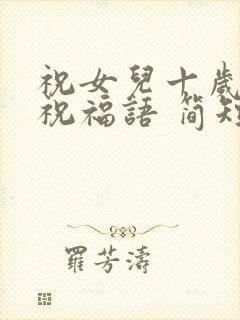 祝女兒十歲
祝福語 簡短
羅芳濤